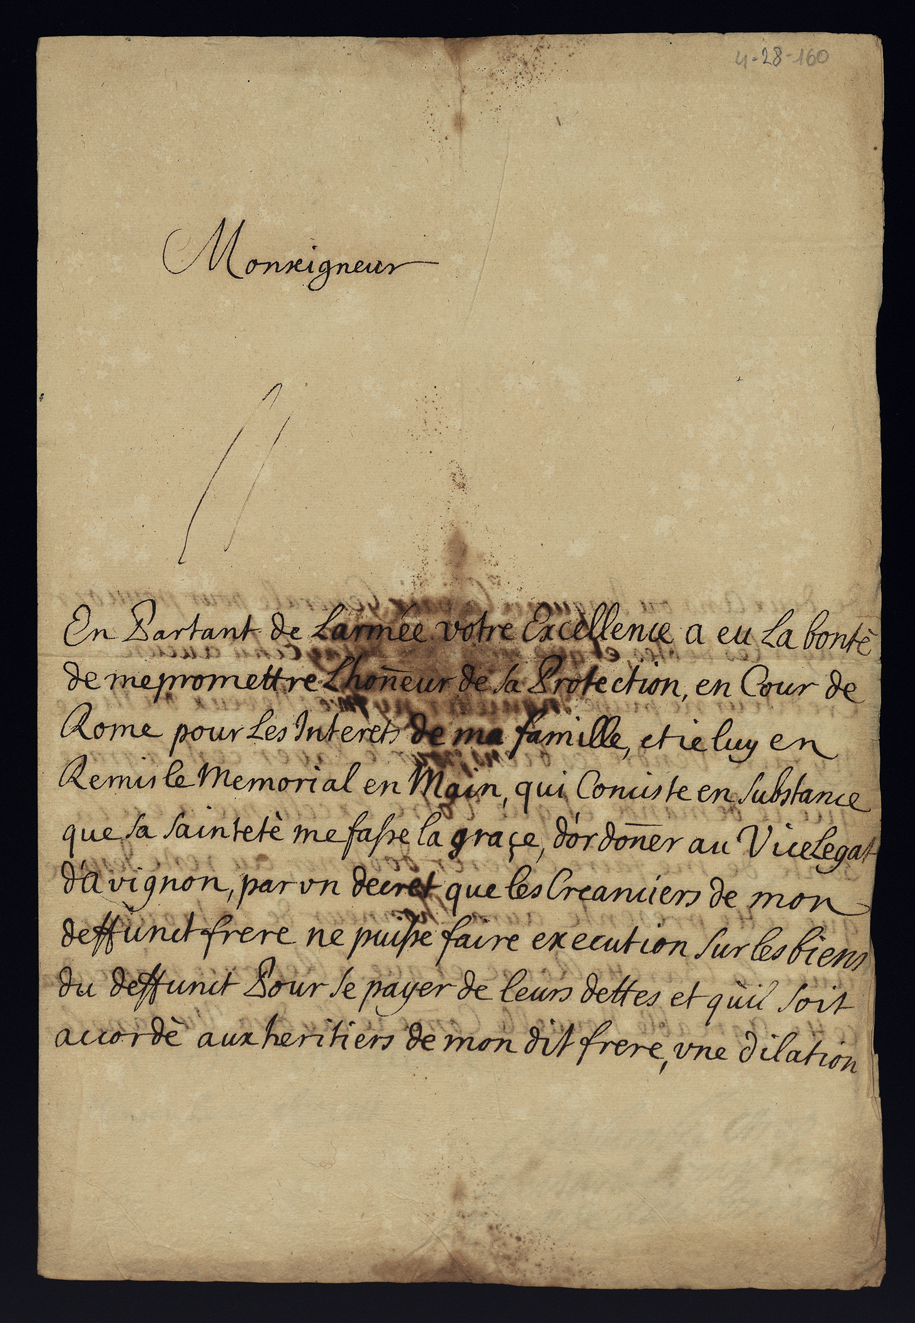 4-28-160
Monseigneur
En Partant de Larmée votre Excellence a eu La bontè
de me promettre Lhoñeur de sa Protection, en Cour de
Rome pour Les Interets de ma famille, et ie luy en
Remis le Memorial en Main, qui Consiste en substance
que sa saintetè me fasse la graçe, d'ordoñer au Vice Legat
d'avignon, par vn decret que les Creanciers de mon
deffunct frere ne puisse faire execution sur les biens
du deffunct Pour se payer de leurs dettes et qu'il soit
accordè aux heritiers de mon dit frere, vne dilation